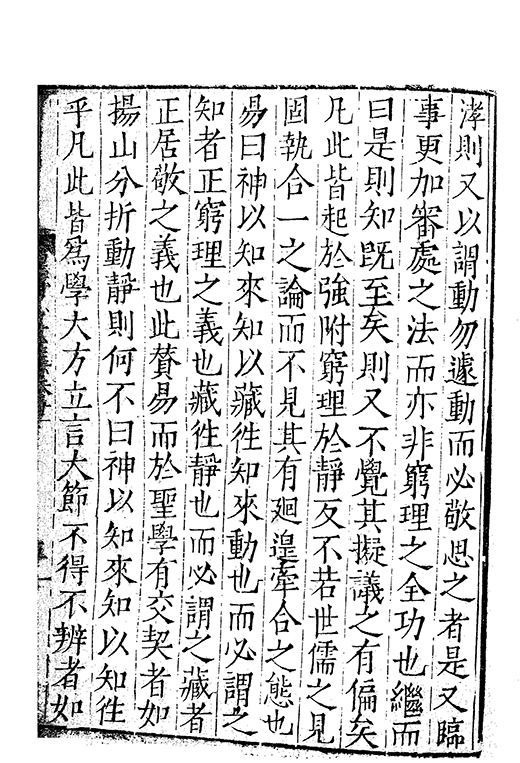 涍則又以謂動勿遽動而必敬思之者是又臨
事更加審處之法而亦非窮理之全功也繼而
曰是則知既至矣則又不覺其擬議之有偏矣
凡此皆起於強附窮理於靜反不若世儒之見
固執合一之論而不見其有廻遑牽合之態也
易曰神以知來知以藏徃知來動也而必謂之
知者正窮理之義也藏徃靜也而必謂之藏者
正居敬之義也此賛易而於聖學有交契者如
揚山分折動靜則何不曰神以知來知以知徃
乎凡此皆爲學大方立言大節不得不辨者如